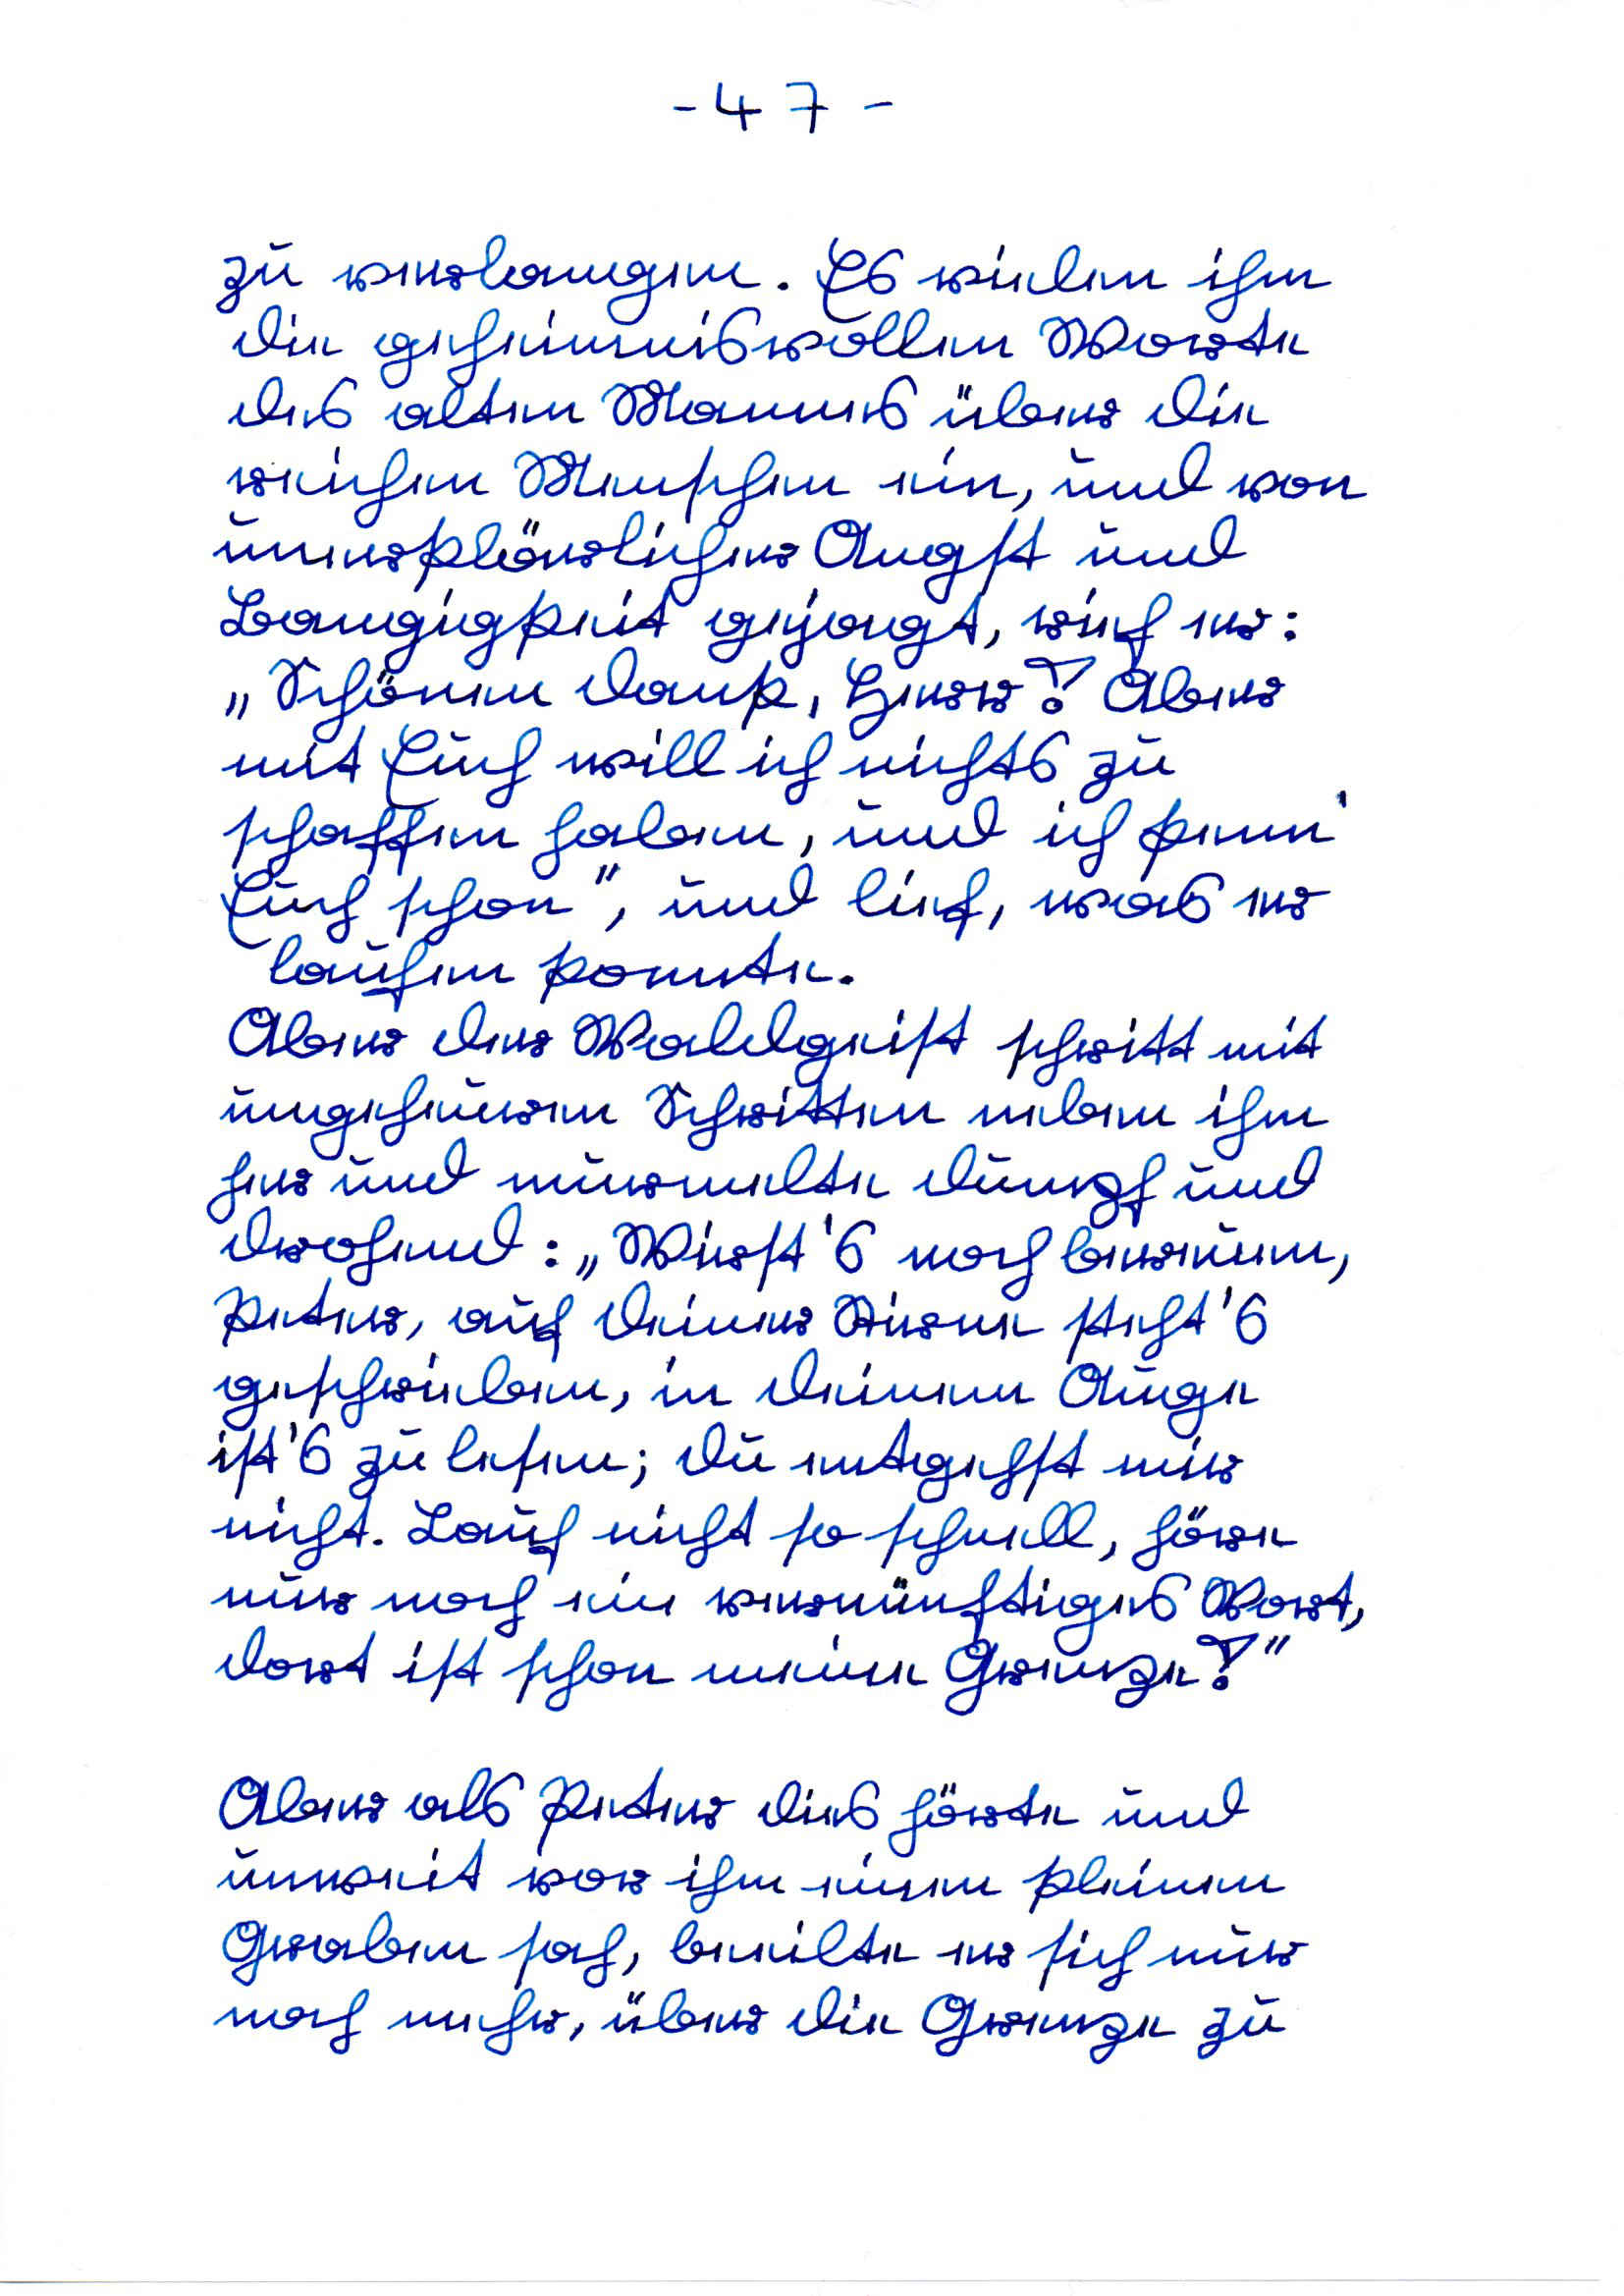 - 47 -
zu verlangen. Es vielen ihm
die geheimnisvollen Worte
des alten Mannes über die
reichen Menschen ein, und von
unerklärlicher Angst und
Bangigkeit gejagt, rief er:
„Schönen Dank, Herr! Aber
mit Euch will ich nichts zu
schaffen haben, und ich kenn'
Euch schon", und lief, was er
laufen konnte.
Aber der Waldgeist schritt mit
ungeheuren Schritten neben ihm
her und murmelte dumpf und
drohend: „Wirst's noch bereuen,
Peter, auf deiner Stirne steht's
geschrieben, in deinem Auge
ist's zu lesen; du entgehst mir
nicht. Lauf nicht so schnell, höre
nur noch ein vernünftiges Wort,
dort ist schon meine Grenze!"
Aber als Peter dies hörte und
unweit vor ihm einen kleinen
Graben sah, beeilte er sich nur
noch mehr, über die Grenze zu